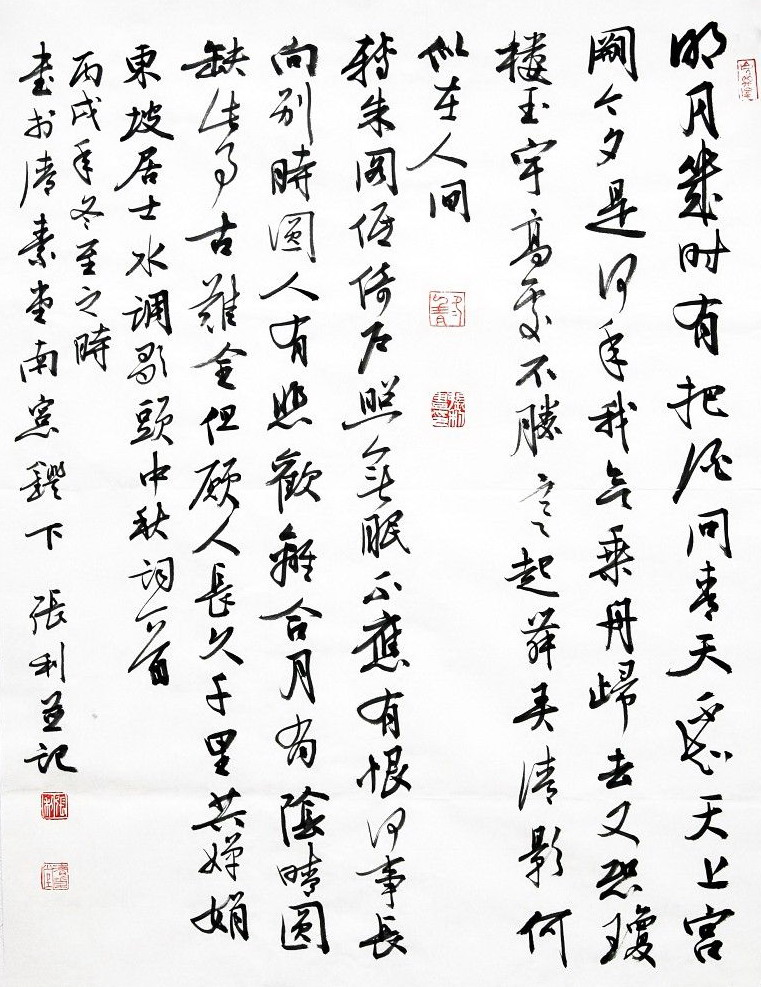 明月幾时有把酒问青天不知天上宮
闕今夕是何年我欲乘風歸去又恐瓊
楼玉宇高處不勝寒起舞弄清影何
似在人间
轉朱阁低倚户照無眠不應有恨何事長
向别時圆人有悲歡離合月有陰晴圆
缺此事古難全但願人長久千里共嬋娟
東坡居士水调歌頭中秋词一首
丙戌年冬至之時
書於清素堂南窓鐙下 張利並記